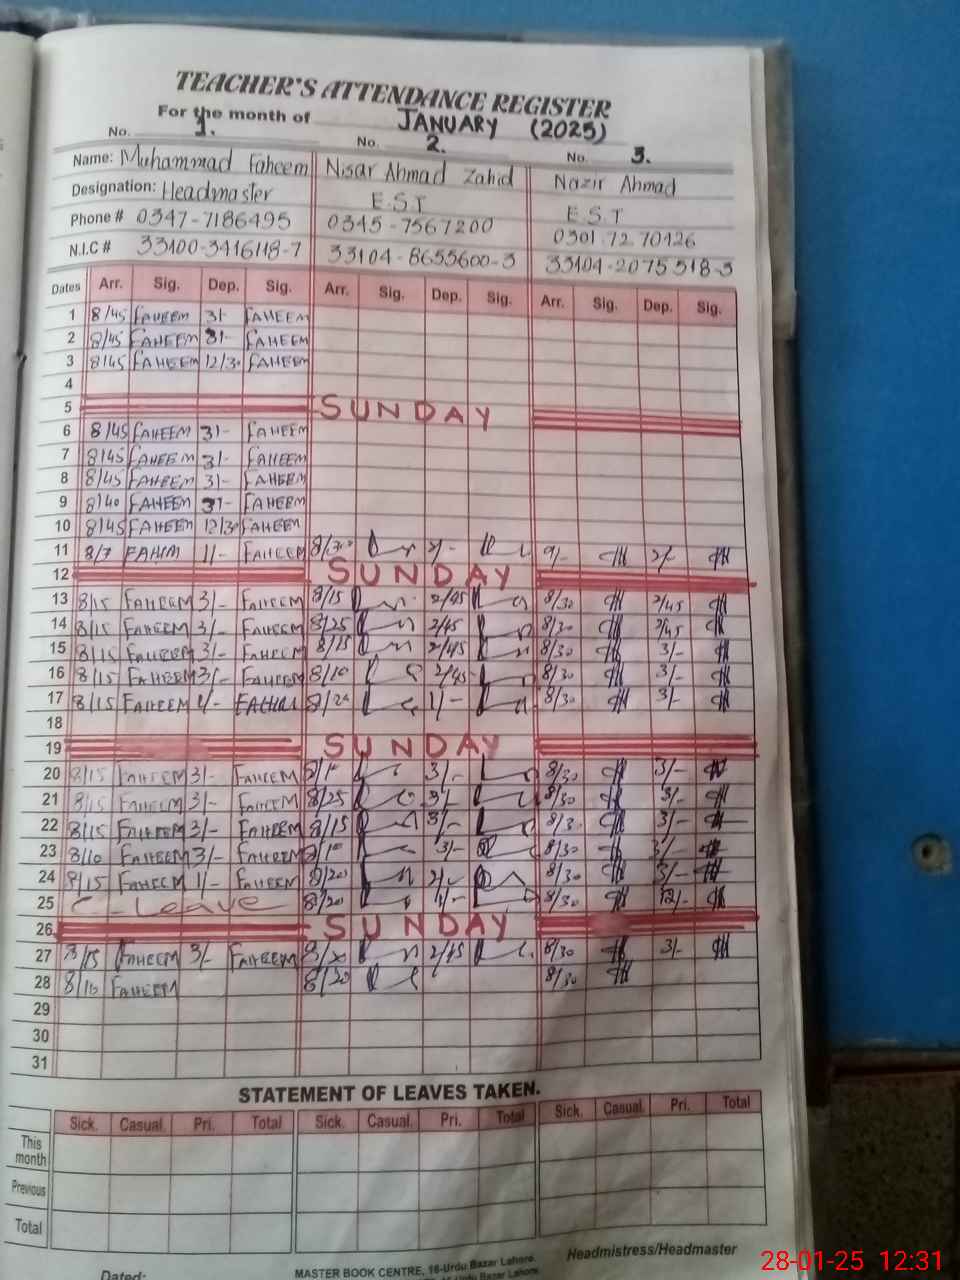 TEACHER'S ATTENDANCE REGISTER
For the month of JANUARY (2025)
No. 1. No. 2. No. 3.
Name: Muhammad Faheem Nisar Ahmad Zahid Nazir Ahmad
Designation: Headmaster E.S.T E.S.T
Phone # 0347-7186495 0345-7567200 0301 72 70126
N.I.C # 33100-3416118-7 33104-8655600-3 33104-2075518-3
Dates Arr. Sig. Dep. Sig. Arr. Sig. Dep. Sig. Arr. Sig. Dep. Sig.
1 8/45 FAHEEM 3/- FAHEEM
2 8/45 FAHEEM 3/- FAHEEM
3 8/45 FAHEEM 12/30 FAHEEM
4
5 SUNDAY
6 8/45 FAHEEM 3/- FAHEEM
7 8/45 FAHEEM 3/- FAHEEM
8 8/45 FAHEEM 3/- FAHEEM
9 8/40 FAHEEM 3/- FAHEEM
10 8/45 FAHEEM 12/30 FAHEEM
11 8/7 FAHIM 1/- FAHEEM 8/30 2/- 9/- 2/-
12 SUNDAY
13 8/15 FAHEEM 3/- FAHEEM 8/15 2/45 8/30 2/45
14 8/15 FAHEEM 3/- FAHEEM 8/25 2/45 8/30 2/45
15 8/15 FAHEEM 3/- FAHEEM 8/15 2/45 8/30 3/-
16 8/15 FAHEEM 3/- FAHEEM 8/10 2/45 8/30 3/-
17 8/15 FAHEEM 1/- 8/20 1/- 8/30 3/-
18
19 SUNDAY
20 8/15 FAHEEM 3/- FAHEEM 3/- 8/30 3/-
21 8/15 FAHEEM 3/- FAHEEM 8/25 3/- 8/30 3/-
22 8/15 FAHEEM 3/- FAHEEM 8/15 3/- 8/30 3/-
23 8/10 FAHEEM 3/- FAHEEM 3/- 8/30 3/-
24 8/15 FAHEEM 1/- FAHEEM 8/20 2/- 8/30 3/-
25 C-Leave 8/20 1/- 8/30 12/-
26 SUNDAY
27 8/15 FAHEEM 3/- FAHEEM 8/20 2/45 8/30 3/-
28 8/10 FAHEEM 8/20 8/30
29
30
31
STATEMENT OF LEAVES TAKEN.
Sick. Casual. Pri. Total Sick. Casual. Pri. Total Sick. Casual. Pri. Total
This month
Previous
Total
Headmistress/Headmaster
Dated:
MASTER BOOK CENTRE, 16-Urdu Bazar Lahore.
28-01-25 12:31